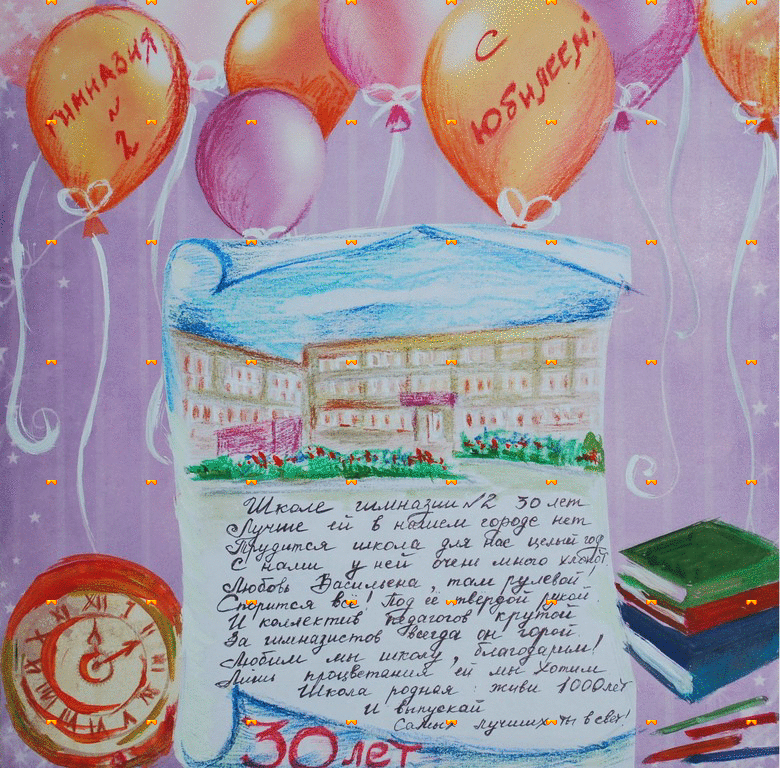 ГИМНАЗИЯ
N
2
С
ЮБИЛЕЕМ!
Школе гимназии N2 30 лет
Лучше ей в нашем городе нет
Трудится школа для нас целый год
С нами у ней очень много хлопот,
Любовь Васильевна, там рулевой!
Спорится всё! Под её твердой рукой
И коллектив педагогов крутой
За гимназистов всегда он горой.
Любим мы школу, благодарим!
Лишь процветания ей мы хотим
Школа родная живи 1000 лет
И выпускай
Самых лучших ты в свет!
30 лет
XII